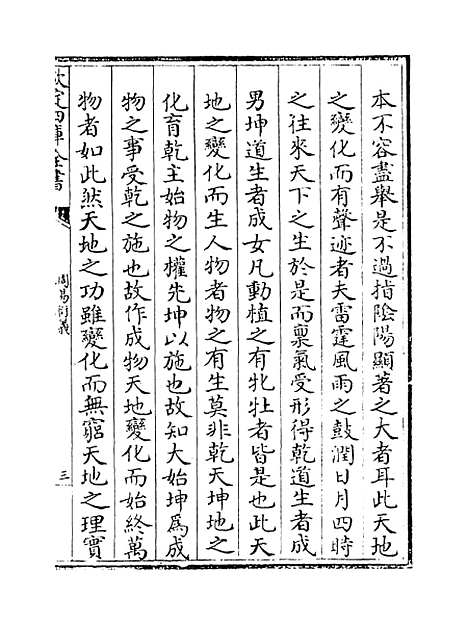 本不容盡舉是不過指陰陽顯著之大者耳此天地
之變化而有聲迹者夫雷霆風雨之鼓潤日月四時
之往來天下之生於是而禀氣受形得乾道生者成
男坤道生者成女凡動植之有牝牡者皆是也此天
地之變化而生人物者物之有生莫非乾天坤地之
化育乾主始物之權先坤以施也故知大始坤爲成
物之事受乾之施也故作成物天地變化而始終萬
物者如此然天地之功雖變化而無窮天地之理實
欽定四庫全書
周易衍義
三